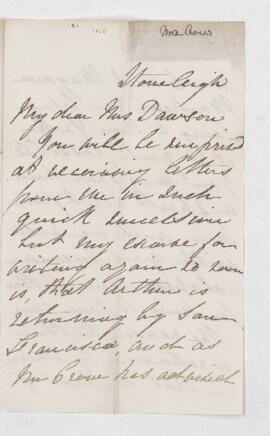 Mrs Crow
Stoneleigh
My dear Mrs Dawson
You will be surprised
at receiving letters
from me in such
quick succession
but my excuse for
writing again so soon
is, that Arthur is
returning by San
Francisco, and as
Mr Crow has advised